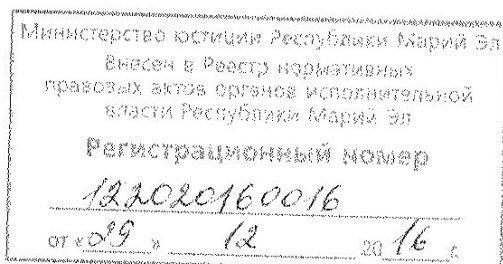 Министерство юстиции Республики Марий Эл
Внесен в Реестр нормативных
правовых актов органов исполнительной
власти Республики Марий Эл
Регистрационный номер
122020160016
от «29» 12 2016 г.